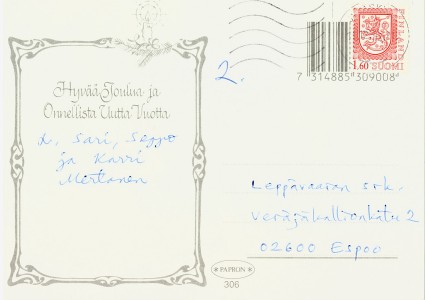 2.
FINLAND
1,60 SUOMI
7 314885 309008
Hyvää Joulua ja
Onnellista Uutta Vuotta
t. Sari, Seppo
ja Karri
Mertanen
Leppävaaran srk.
Veräjäkallionkatu 2
02600 Espoo
PAPRON
306